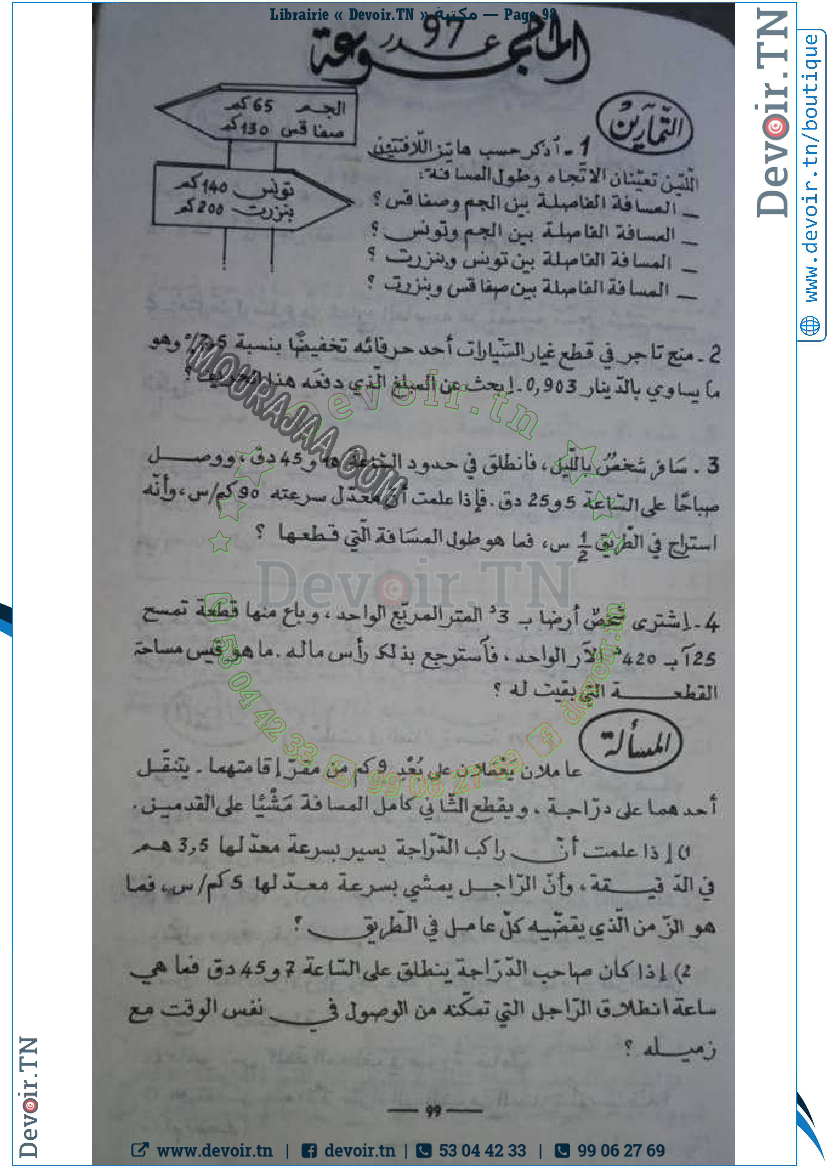 Librairie « Devoir.TN » مكتبة — Page 98
المجموعة عدد 97
التمارين
الجم 65 كم
صفاقس 130 كم
تونس 140 كم
بنزرت 200 كم
1 - أذكر حسب هاتين اللافتتين
اللتين تعينان الاتجاه وطول المسافة:
— المسافة الفاصلة بين الجم وصفاقس ؟
— المسافة الفاصلة بين الجم وتونس ؟
— المسافة الفاصلة بين تونس وبنزرت ؟
— المسافة الفاصلة بين صفاقس وبنزرت ؟
2 - منح تاجر في قطع غيار السّيارات أحد حرفائه تخفيضًا بنسبة 7,5% وهو
ما يساوي بالدّينار 0,903. إبحث عن المبلغ الّذي دفعه هذا الحريف ؟
3 - سافر شخصٌ باللّيل، فانطلق في حدود السّاعة و 45 دق، ووصل
صباحًا على السّاعة 5 و 25 دق. فإذا علمت أنّ معدّل سرعته 90 كم/س، وأنّه
استراح في الطّريق 1/2 س، فما هو طول المسافة الّتي قطعها ؟
4 - إشترى شخصٌ أرضا بـ 3ᵈ المتر المربّع الواحد، وباع منها قطعة تمسح
25 آ بـ 420ᵈ الآر الواحد، فاسترجع بذلك رأس ماله. ما هو قيس مساحة
القطعة التي بقيت له ؟
المسألة
عاملان يعملان على بُعْدِ 9 كم من مقرّ إقامتهما. يتنقّل
أحدهما على درّاجة، ويقطع الثّاني كامل المسافة مَشْيًا على القدمين.
1) إذا علمت أنّ راكب الدّرّاجة يسير بسرعة معدّلها 3,5 هم
في الدّقيقة، وأنّ الرّاجل يمشي بسرعة معدّلها 5 كم/س، فما
هو الزّمن الّذي يقضّيه كلّ عامل في الطّريق ؟
2) إذا كان صاحب الدّرّاجة ينطلق على السّاعة 7 و 45 دق فما هي
ساعة انطلاق الرّاجل التي تمكّنه من الوصول في نفس الوقت مع
زميله ؟
— 99 —
MOURAJAA.COM
devoir.tn
Devoir.TN
53 04 42 33
99 06 27 69
devoir.tn
Devoir.TN
www.devoir.tn/boutique
Devoir.TN
www.devoir.tn | devoir.tn | 53 04 42 33 | 99 06 27 69